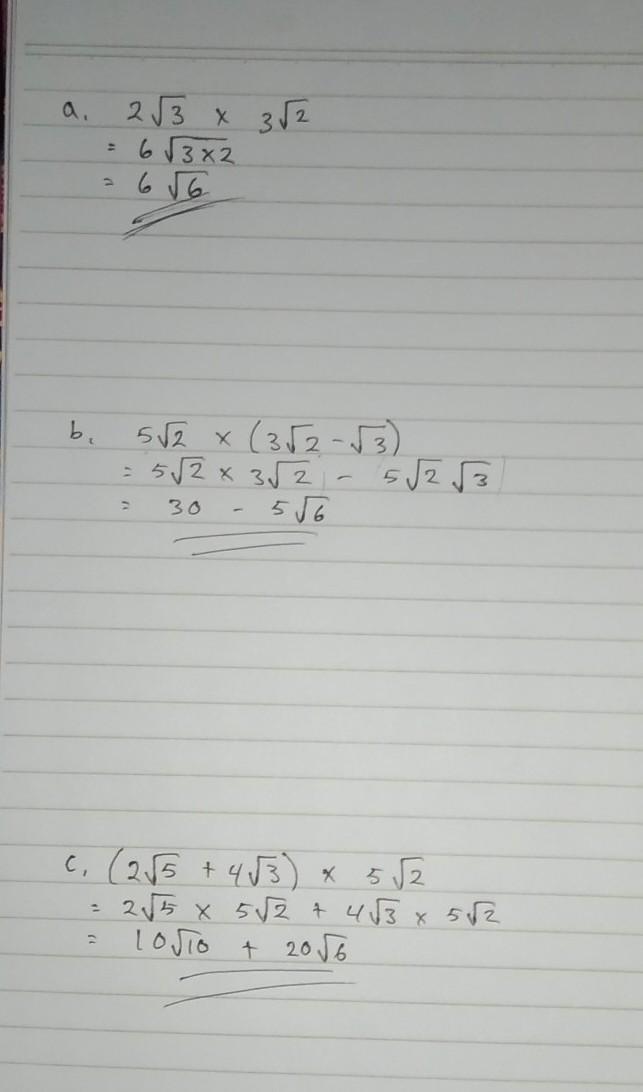 a. 2√3 x 3√2
= 6√3x2
= 6√6
b. 5√2 x (3√2 - √3)
= 5√2 x 3√2 - 5√2 √3
= 30 - 5√6
c. (2√5 + 4√3) x 5√2
= 2√5 x 5√2 + 4√3 x 5√2
= 10√10 + 20√6